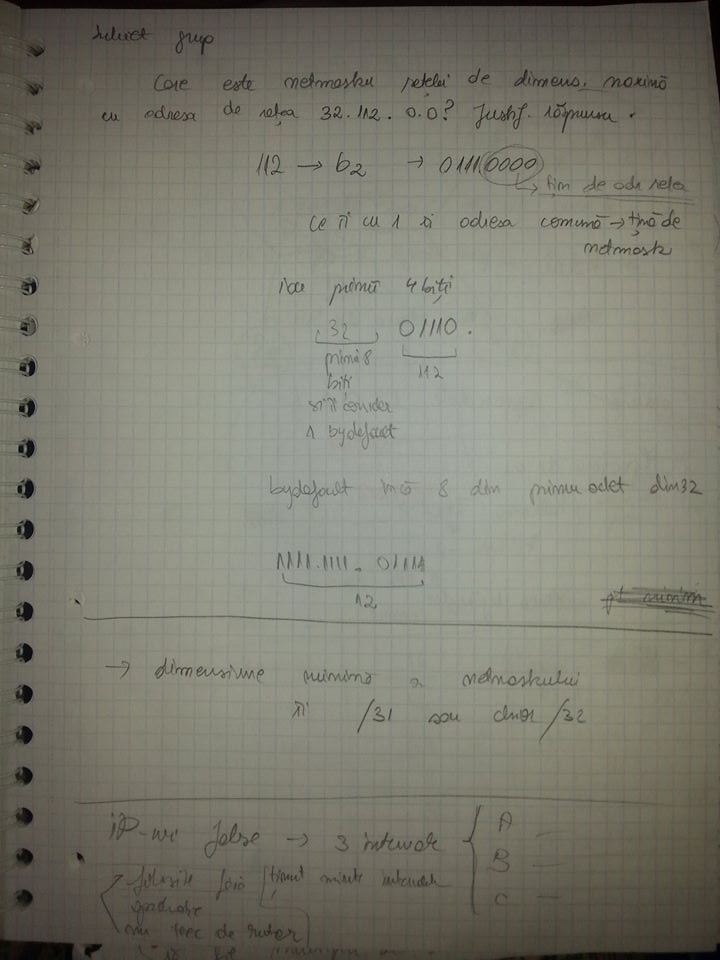 Subiect grup
Care este netmasku rețelei de dimens. maximă
cu adresa de rețea 32.112.0.0? Justif. răspunsu.
112 → b2 → 01110000
↳ țin de adr rețea
ce îi cu 1 îi adresa comună → țină de
netmask
iau primii 4 biți
32 01110.
primii 8 112
biți
și îi consider
1 by default
by default încă 8 din primu octet din 32
1111.1111. 01111
12
pt minim
→ dimensiune minimă a netmaskului
îi /31 sau chiar /32
IP-uri false → 3 intervale A —
folosite fără ținut minte intervale B —
C —
nu trec de router